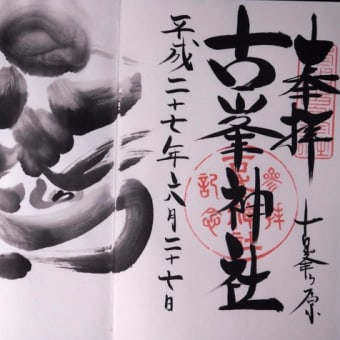 奉拝
古峯ヶ原
古峯神社
参拝記念
平成二十七年六月二十七日